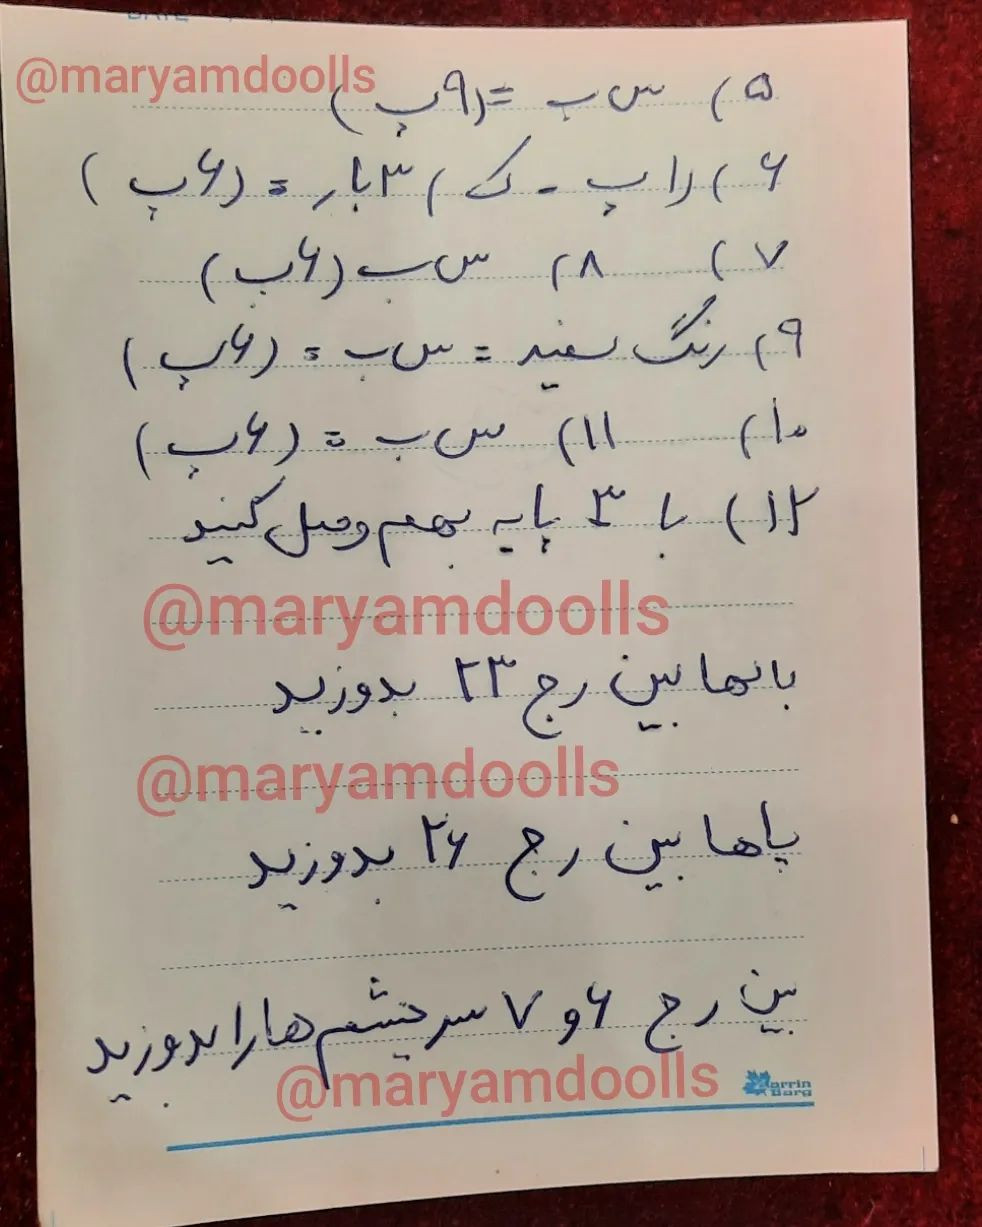 DATE
@maryamdoolls
۵) س ب = (۹پ)
۶) (۱پ - ک) ۳بار = (۶پ)
۷) ۸) س ب (۶پ)
۹) رنگ سفید = س ب = (۶پ)
۱۰) ۱۱) س ب = (۶پ)
۱۲) با ۳ پایه بهم وصل کنید
@maryamdoolls
بالها بین رج ۲۳ بدوزید
@maryamdoolls
پاها بین رج ۲۶ بدوزید
بین رج ۶ و ۷ سر چشم ها را بدوزید
@maryamdoolls
Barg